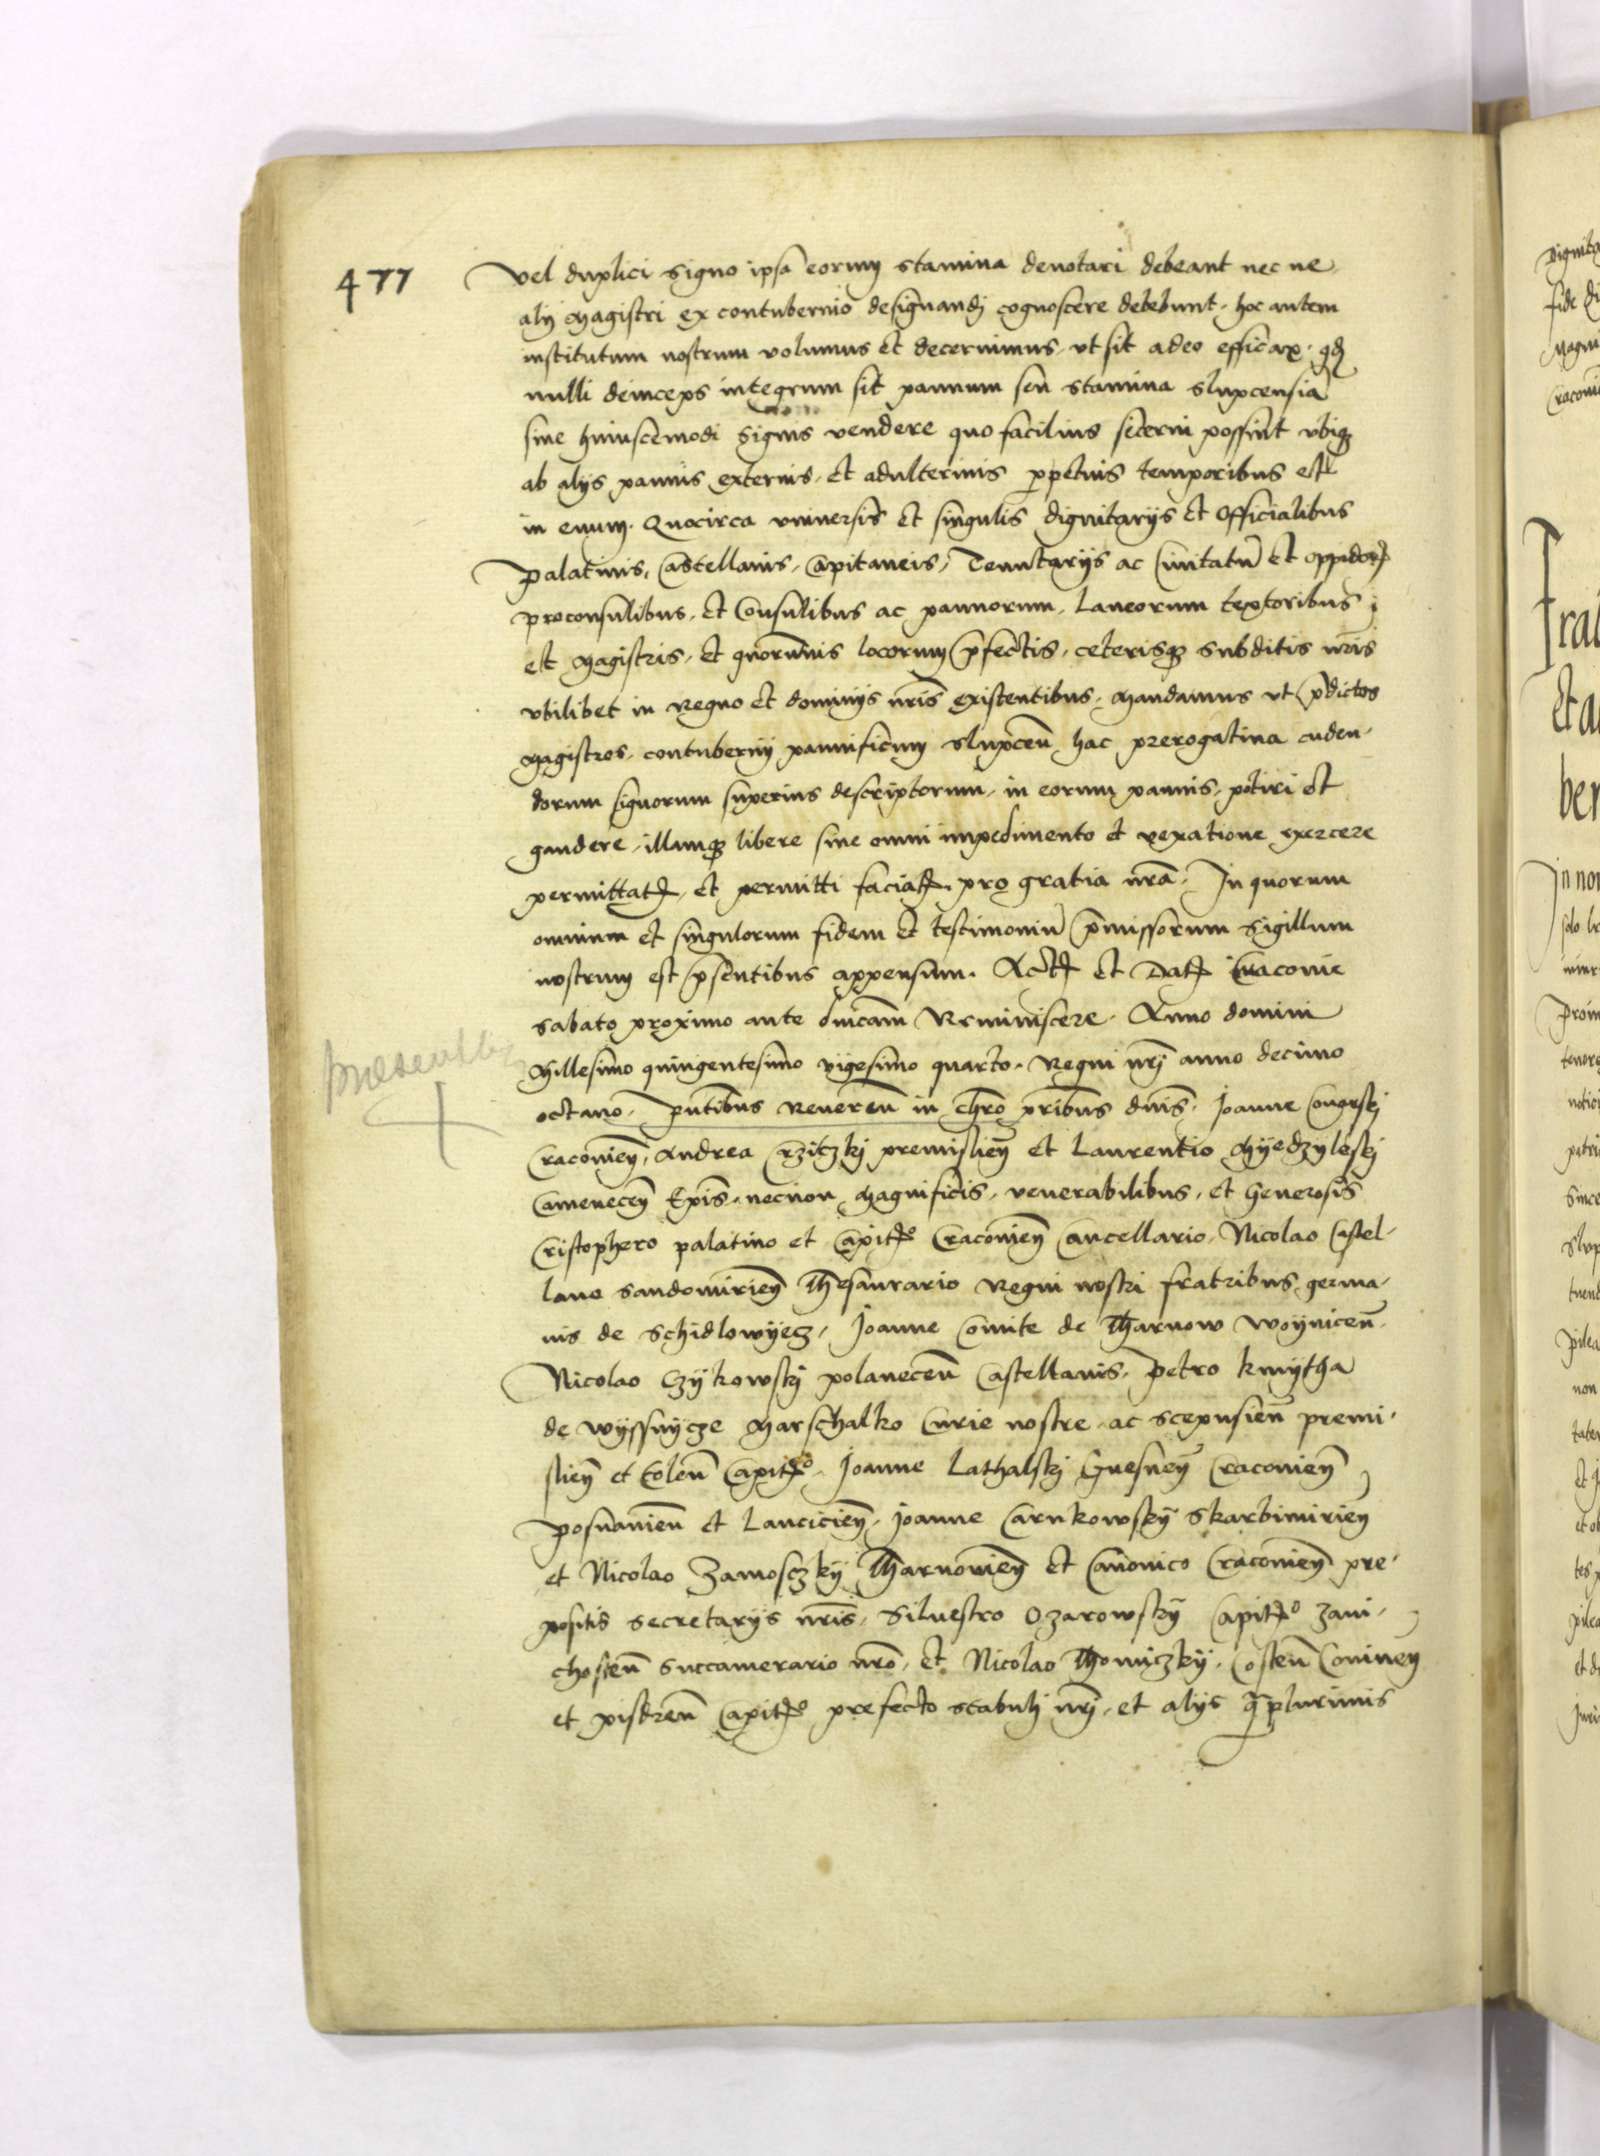 477
vel duplici signo ipsa eorum stamina denotari debeant nec ne
alij Magistri ex contubernio designandj cognoscere debebunt. hoc autem
institutum nostrum volumus et decernimus, vt sit adeo efficax. qd
nulli deinceps integrum sit pannum seu stamina slupcensia
sine huiuscemodi signis vendere quo facilius secerni possint vbiq
ab alijs pannis externis, et adulterinis ppetuis temporibus et
in euum. Quocirca vniuersis et singulis dignitarijs et Officialibus
palatinis, Castellanis, Capitaneis, Tenutarijs ac Ciuitatu et oppidor
proconsulibus, et Consulibus ac pannorum, laneorum textoribus
et Magistris, et quorumuis locorum pfectis, ceterisq subditis nris
vbilibet in Regno et dominijs nris existentibus, Mandamus vt pdictos
Magistros, contubernij pannificum slupcen hac prerogatiua cuden-
dorum signorum superius descriptorum, in eorum pannis, potiri et
gaudere, illamq libere sine omni impedimento et vexatione exercere
permittat, et permitti faciat, pro gratia nra. In quorum
omnium et singulorum fidem et testimoniu pmissorum Sigillum
nostrum est psentibus appensum. Act et Dat Cracouie
sabato proximo ante dnicam Reminiscere. Anno domini
Millesimo quingentesimo vigesimo quarto. Regni nrj anno decimo
octauo. pntibus Reueren in chro pribus dnis. Joanne Conarskj
Cracouien, Andrea Crziczkj premislien et Laurentio Myedzyleskj
Camenecen Epis. necnon Magnificis, venerabilibus, et Generosis
Cristophero palatino et Capit Cracouien Cancellario, Nicolao Castel-
lano Sandomirien Thesaurario Regni nostri fratribus germa-
nis de Schidlowyecz, Joanne Comite de Tharnow Woynicen
Nicolao Czykowskj polanecen Castellanis, petro kmytha
de Wyssnycze Marschalko Curie nostre ac Scepusien premi-
slien et Colen Capit, Joanne Lathalskj Gnesnen Cracouien
posnanien et Lancicien, Joanne Carnkowsky Skarbimirien
et Nicolao Zamosczky Tharnouien et Canonico Cracouien pre-
positis secretarijs nris, Siluestro Ozarowsky Capit Zaui-
chosten Succamerario nro, et Nicolao Thomiczky. Costen Coninen
et pisdren Capit prefecto stabulj nrj, et alijs qplurimis